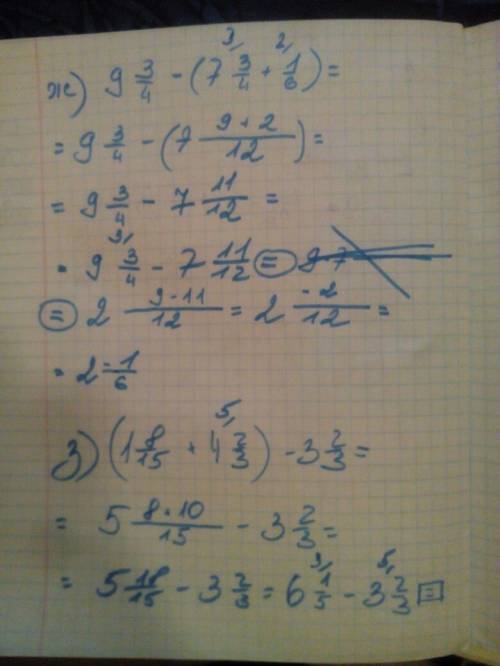 3, 2,
ж) 9 3/4 - (7 3/4 + 1/6) =
= 9 3/4 - (7 (9+2)/12) =
= 9 3/4 - 7 11/12 =
3,
= 9 3/4 - 7 11/12 = 9 7
= 2 (9-11)/12 = 2 -2/12 =
= 2 -1/6
5,
з) (1 8/15 + 4 2/3) - 3 2/3 =
= 5 (8+10)/15 - 3 2/3 =
3, 5,
= 5 18/15 - 3 2/3 = 6 1/5 - 3 2/3 =